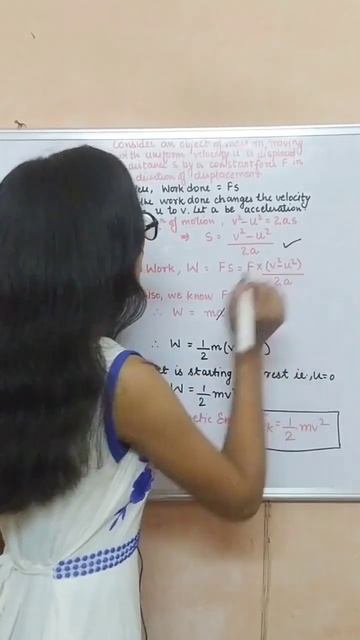 Consider an object of mass m, moving
with uniform velocity u is displaced
distance s by a constant force F in
direction of displacement.
Work done = Fs
the work done changes the velocity
u to v. Let a be acceleration
of motion, v²-u² = 2as
⇒ S = v²-u² / 2a ✓
Work, W = Fs = F × (v²-u²) / 2a
we know F
∴ W = m
∴ W = 1/2 m(v )
is starting rest ie, u=0
W = 1/2 mv²
k = 1/2 mv²